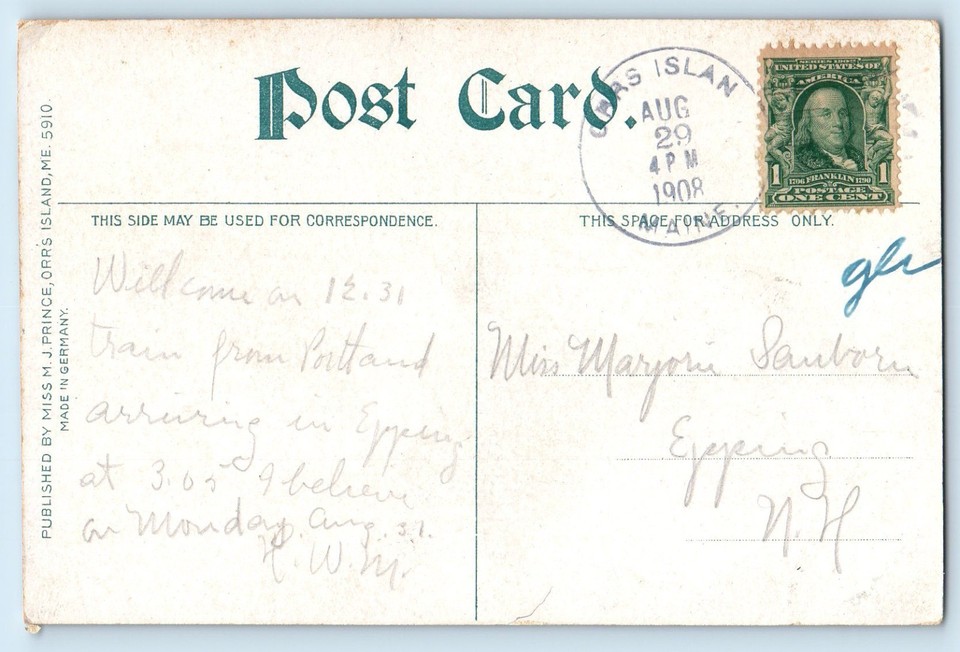 Post Card.
ORRS ISLAN
AUG
29
4 PM
1908
MAINE.
SERIES 1902
UNITED STATES OF
AMERICA
1 1
1706 FRANKLIN 1790
POSTAGE
ONE CENT
PUBLISHED BY MISS M. J. PRINCE, ORR'S ISLAND, ME. 5910.
MADE IN GERMANY.
THIS SIDE MAY BE USED FOR CORRESPONDENCE.
THIS SPACE FOR ADDRESS ONLY.
Will come on 12.31
train from Portland
arriving in Epping
at 3.05 I believe
on Monday. Aug. 31.
H. W. M.
Miss Marjorie Sanborn
Epping
N. H